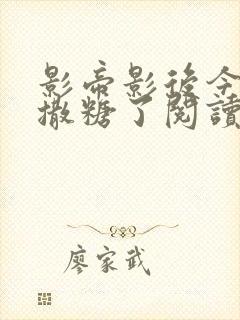 影帝影後今
撒糖了閱讀
廖家武